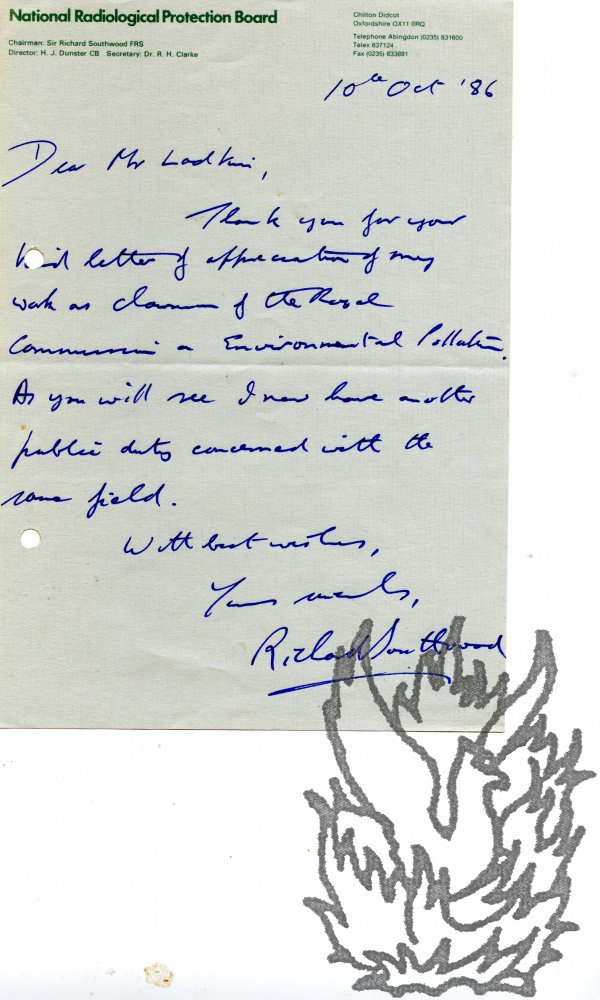 National Radiological Protection Board
Chairman: Sir Richard Southwood FRS
Director: H. J. Dunster CB Secretary: Dr. R. H. Clarke
Chilton Didcot
Oxfordshire OX11 0RQ
Telephone Abingdon (0235) 831600
Telex 837124
Fax (0235) 833891
10th Oct '86
Dear Mr Ladkin,
Thank you for your
kind letter of appreciation of my
work as chairman of the Royal
Commission on Environmental Pollution.
As you will see I now have another
public duty concerned with the
same field.
With best wishes,
Yours sincerely,
Richard Southwood